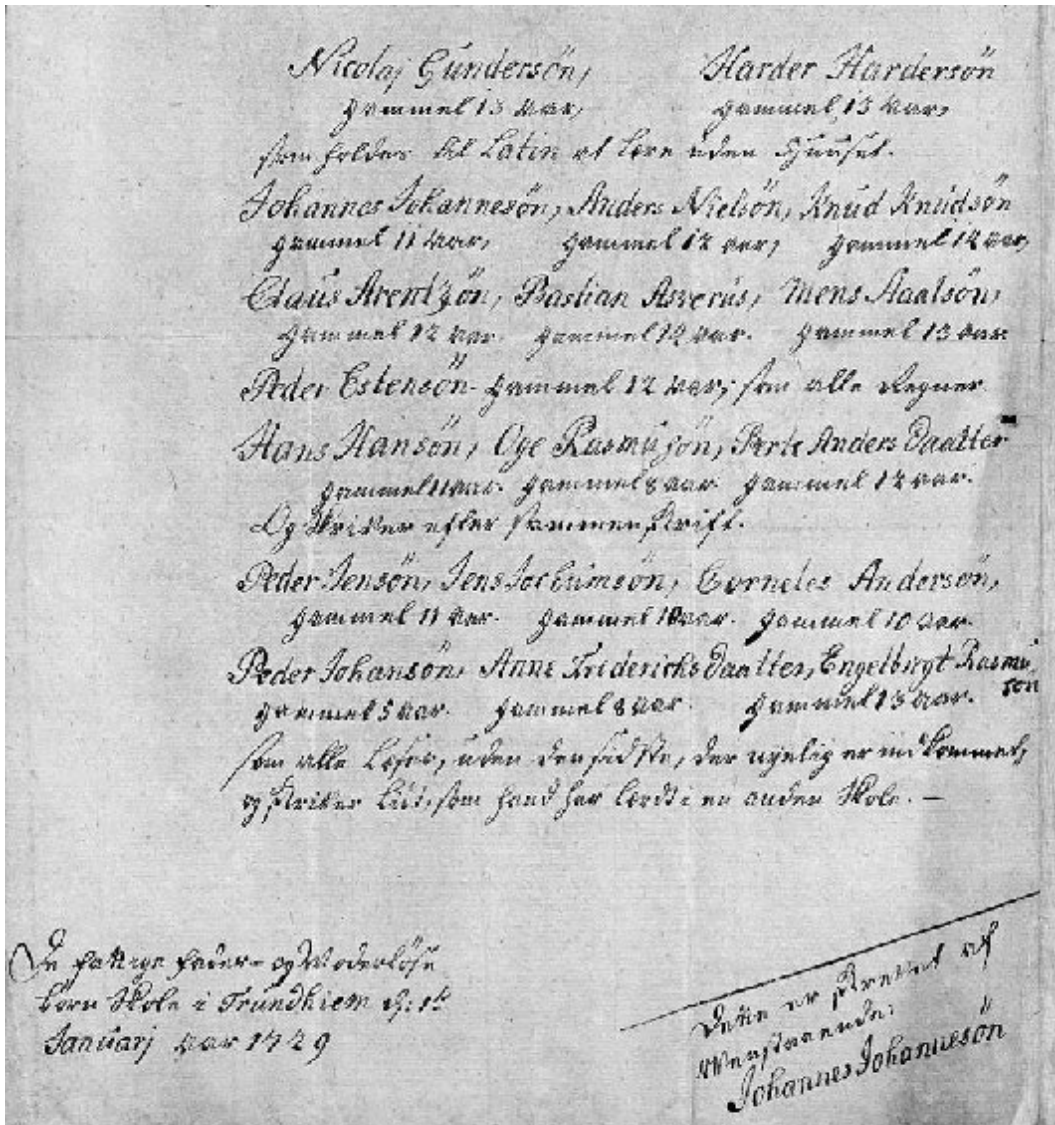 Nicolaj Gundersön, Harder Hardersön
gammel 13 aar, gammel 13 aar,
som holdes til Latin at lære uden Huuset.
Johannes Johannesön, Anders Nielsön, Knud Knudsön
gammel 11 aar, gammel 12 aar, gammel 12 aar,
Claus Arentzön, Bastian Asverus, Mens Aaalsön,
gammel 12 aar. gammel 12 aar. gammel 13 aar
Peder Estensön gammel 12 aar, som alle Regner
Hans Hansön, Oge Rasmusön, Berte Anders Daatter
gammel 11 aar. gammel 8 aar. gammel 12 aar.
Og skriver efter sammenskrift.
Peder Jensön, Jens Jochumsön, Corneles Andersön,
gammel 11 aar. gammel 10 aar. gammel 10 aar.
Peder Johansön, Anne Friderichs Daatter, Engelbrygt Rasmu-
sön
gammel 5 aar. gammel 8 aar. gammel 13 aar.
som alle Læser, uden den sidste, der nyelig er ind kommet,
og skriver lidt, som hand har lærdt i en anden Skole. —
De fattige Fader- og Moderlöse
börn Skole i Trundhiem d: 1te
Januarj aar 1729
Dette er skrevet af
Johannes Johannesön